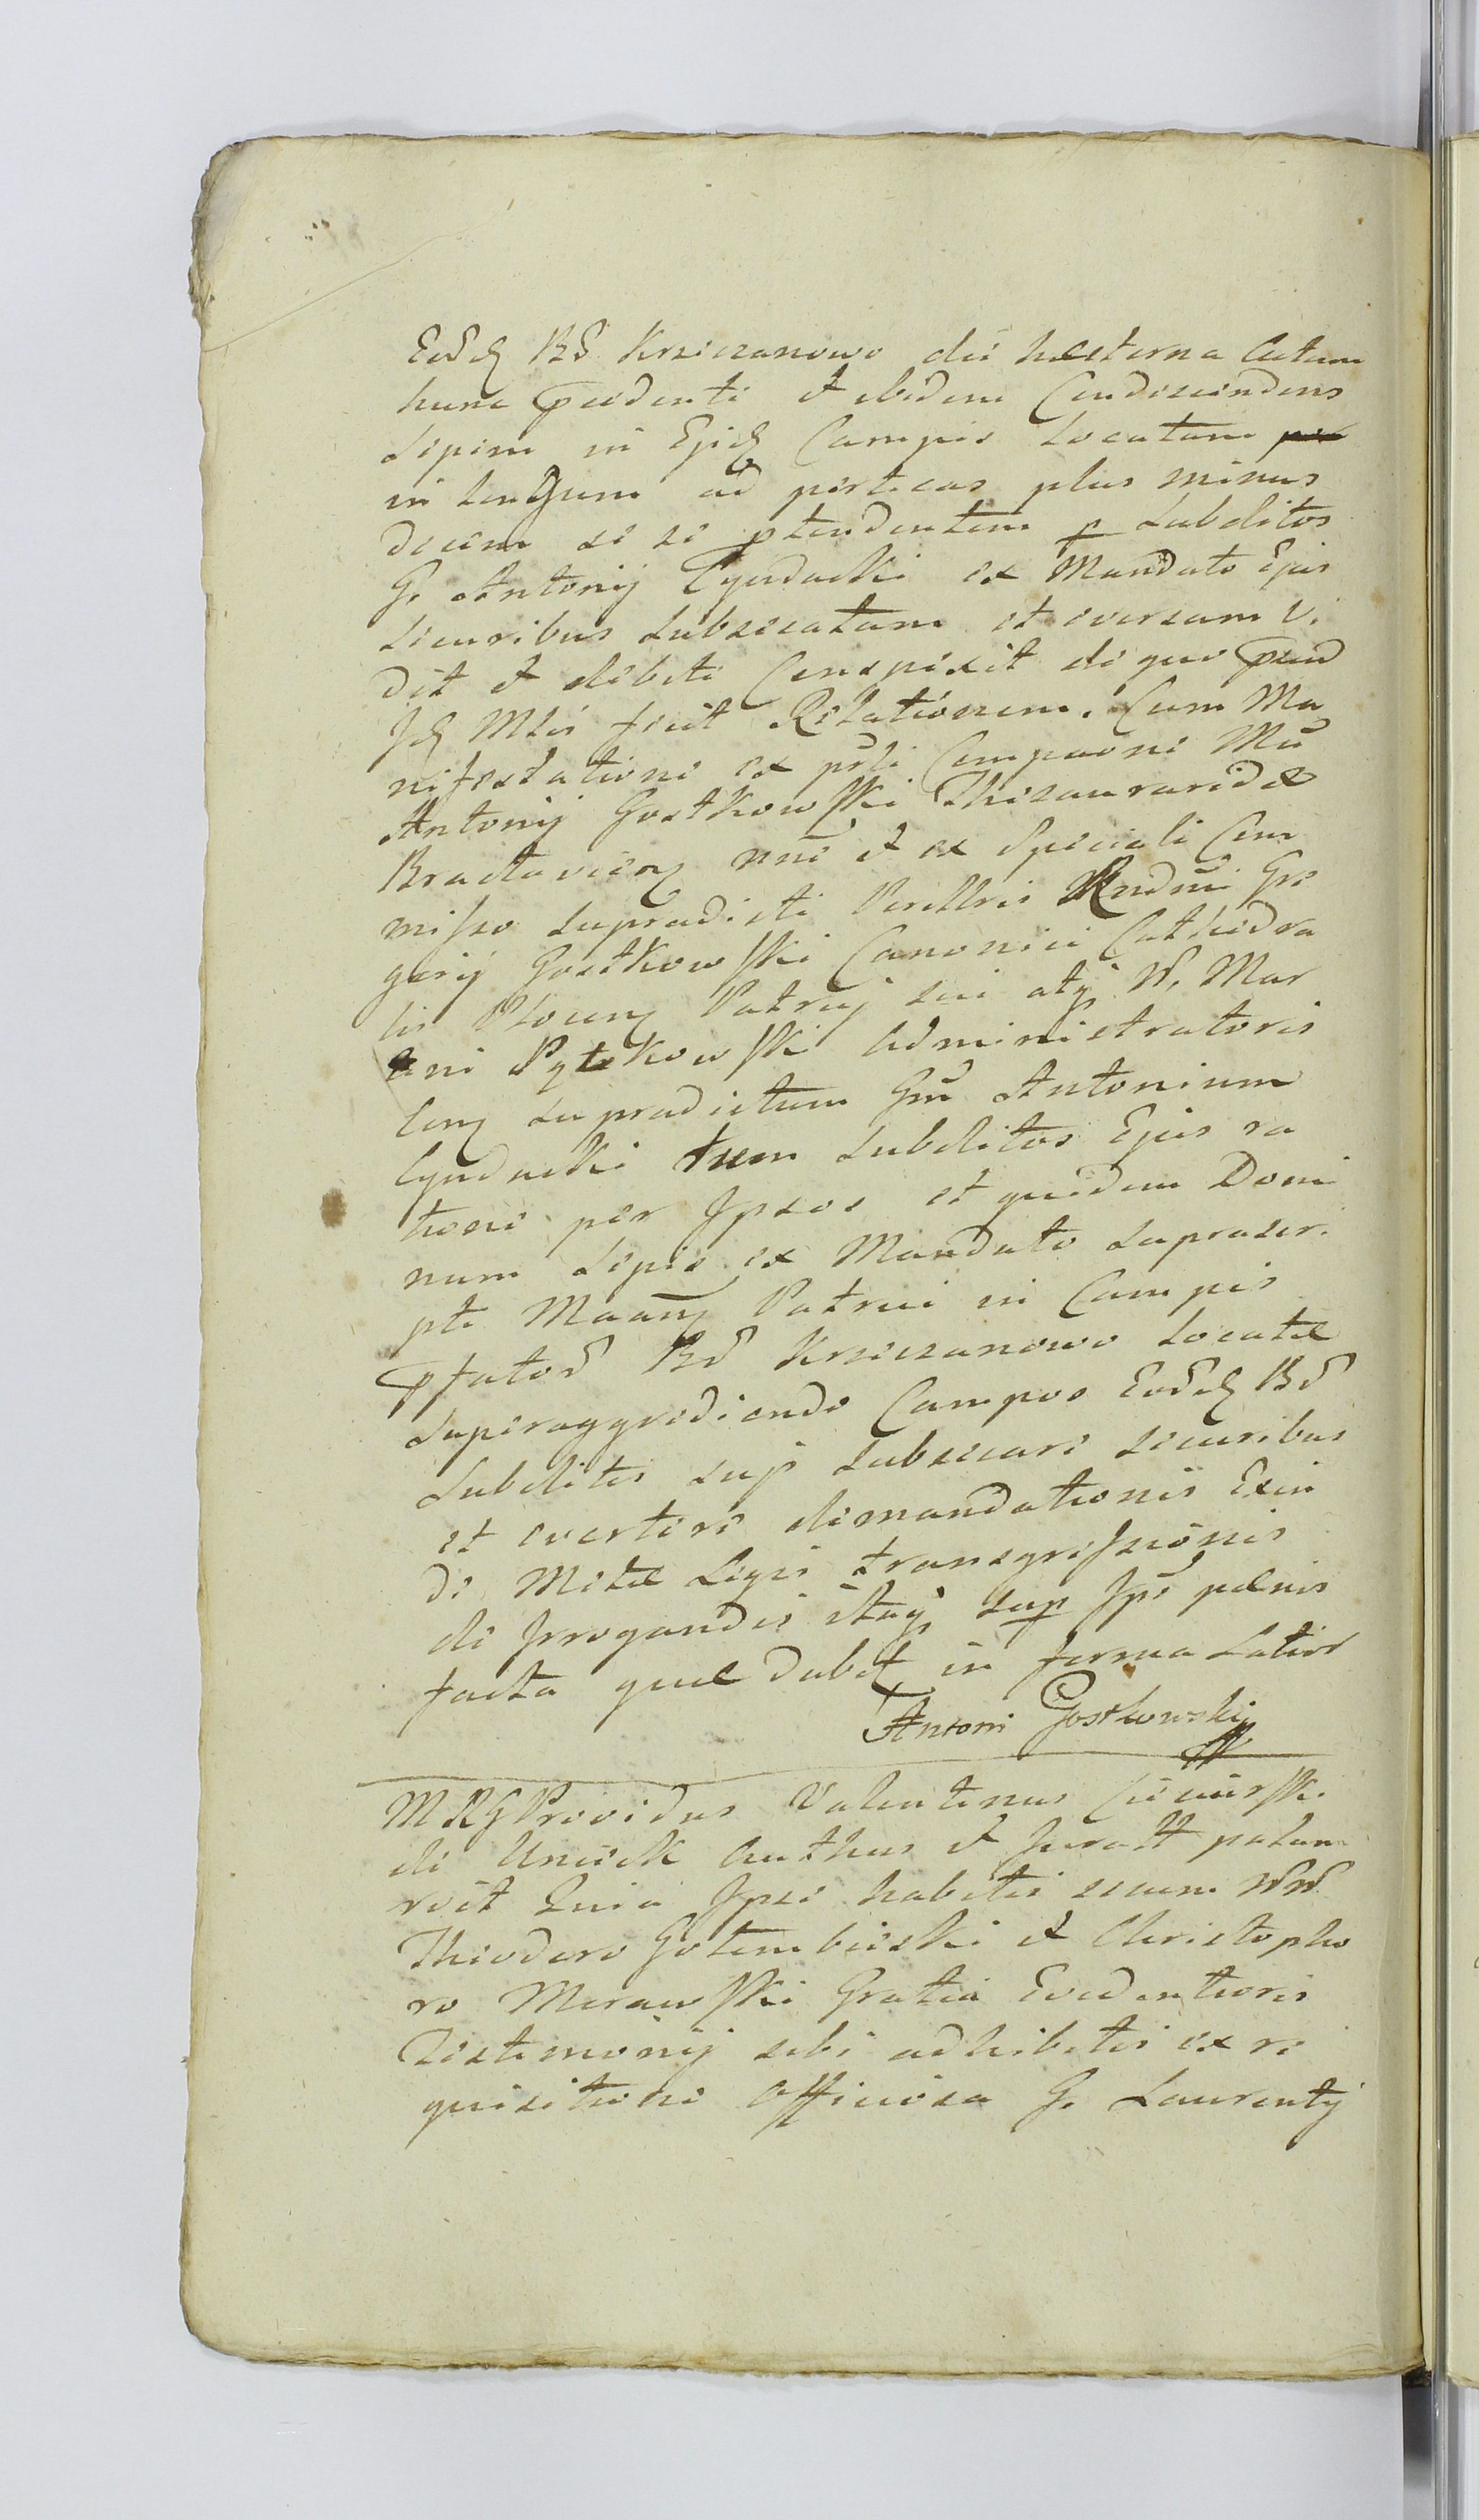 Eosdē Bd Krzeczanowo die hesterna Actum
hunc pcedenti et ibidem Condescendens
Sepem in Ejsdē Campis Locatam
in Longum ad perticas plus minus
decem se se ptendentem p Subditos
G. Antonij Cyndacki ex Mandato Ejus
Securibus Subsecatam et eversam Vi
dit et debite Conspexit de quo
Jdē Mleis fecit Relationem. Cum Ma
nifestatione ex psli Comparone Mci
Antonij Gostkowski Thesauraridæ
Bractavien nne et ex Speciali Com
misso Supradicti Perillris Rndmi Gre
gorij Gostkowski Canonici Cathedra
lis Plocen Patruj sui atq W. Mar
Administratoris
Con Supradictum Gm Antonium
Cyndacki tum Subditos Ejus ra
tione per Jpsos et quidem Domi
num Sepis ex Mandato Suprascri
pti Patrui in Campis
pfator Bd Krzeczanowo Locatæ
Superaggrediendo Campos Eosdē Bd
Subditis suis Subsecare Securibus
et evertere demandationis Exin
de Metæ Legis transgressionis
de Jrrogandis Jps pænis
facta quæ dabit in forma Latiori
Antoni Gostkowski
MRG Providus Valentinus
de Authus et Juratt palam
rcit Quia Jpse habitis secum WW
Theodoro Gotembieski et Christopho
ro Morawski Gratia Evidentioris
Testimonij sibi adhibitis ex re
quisitione Officiosa G. Laurentij